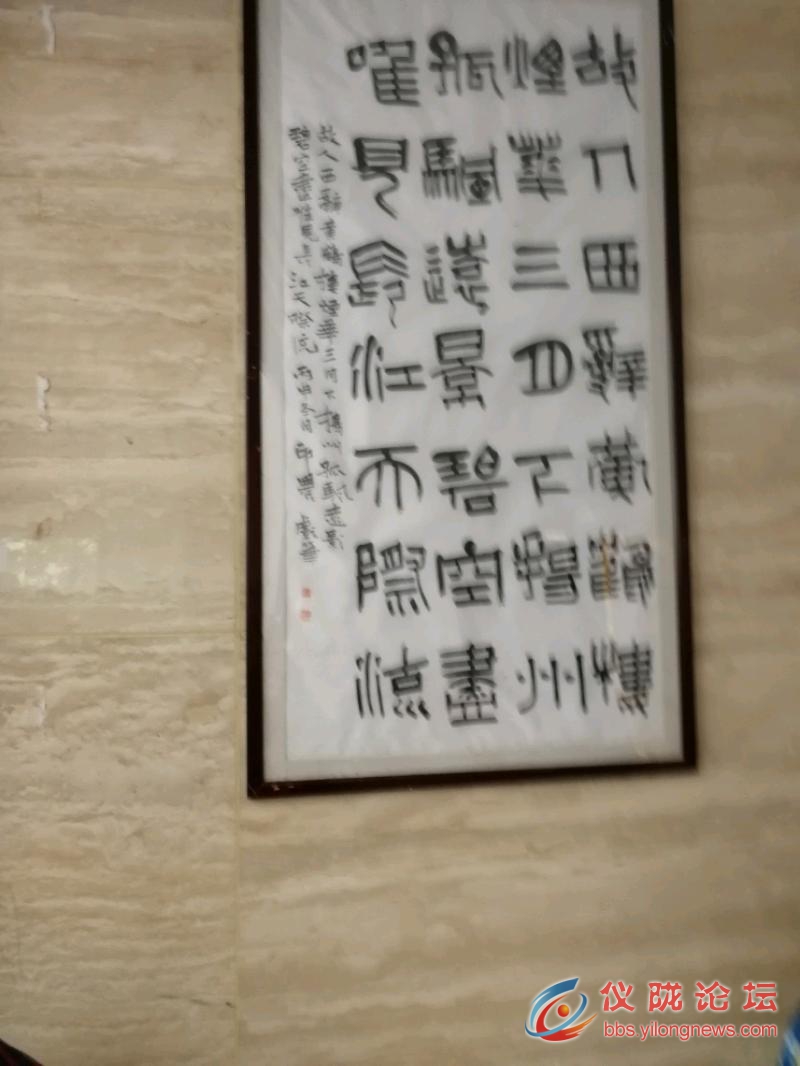 故人西辭黃鶴樓
煙華三月下揚州
孤颿遠景碧空盡
唯見長江天際流
故人西辭黃鶴樓煙華三月下揚州孤帆遠影
碧空盡唯見長江天際流
仪陇论坛
bbs.yilongnews.com